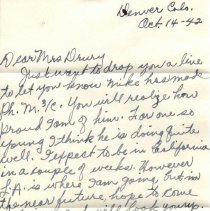 Denver Colo.
Oct. 14-42
Dear Mrs Drury
Just want to drop you a line
to let you know Mike has made
Ph. M. 3/c. You will realize how
proud I am of him. For one so
young I think he is doing quite
well. I expect to be in California
in a couple of weeks. However
L.A. is where I am going. But in
the near future, hope to come